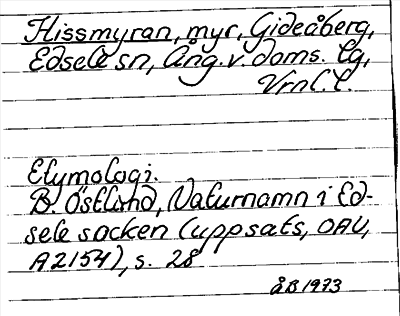 Hissmyran, myr, Gideåberg,
Edsele sn, Ång. v. doms. lg,
Vrnl. l.
Etymologi.
B. Östlund, Naturnamn i Ed-
sele socken (uppsats, OAU,
A2154), s. 28
ÅB 1973